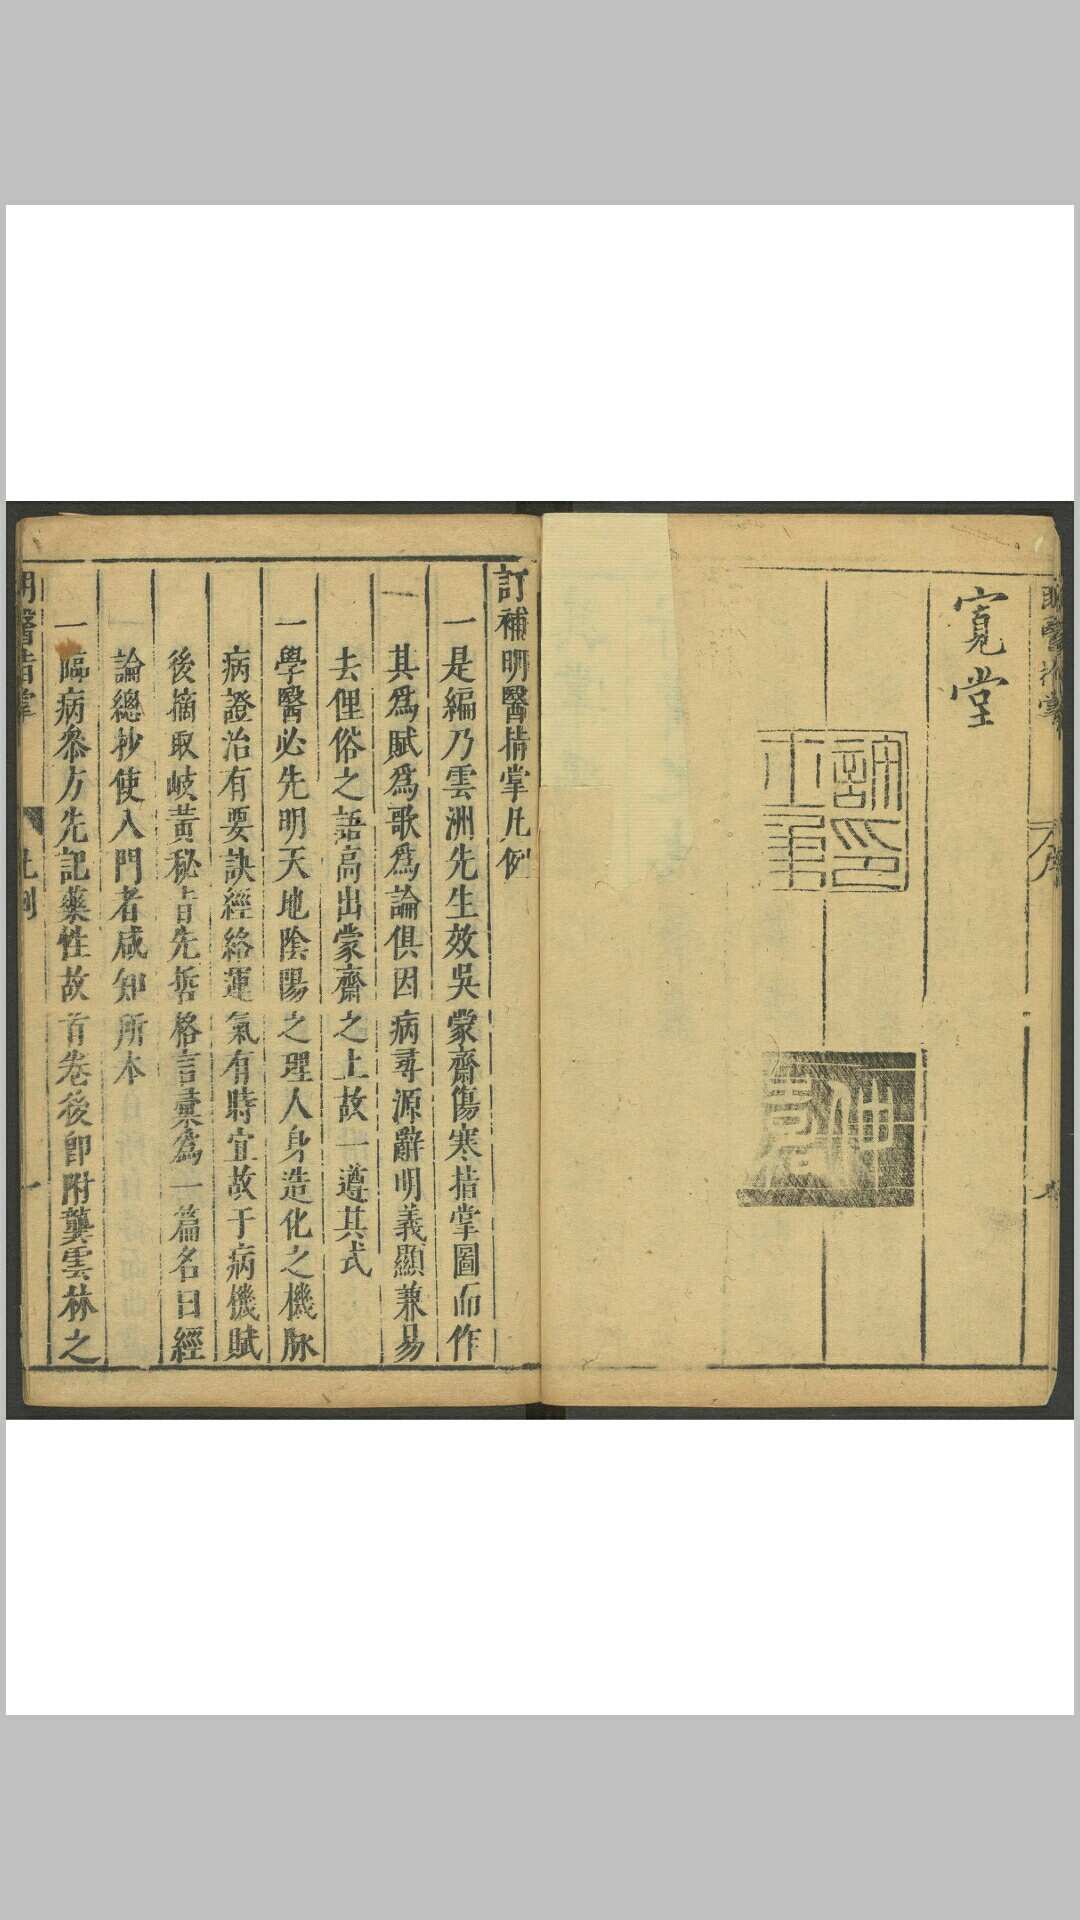 寬堂
訂補明醫指掌凡例
一是編乃雲洲先生效吳蒙齋傷寒指掌圖而作
其爲賦爲歌爲論俱因病尋源辭明義顯兼易
去俚俗之語高出蒙齋之上故一遵其式
一學醫必先明天地陰陽之理人身造化之機脉
病證治有要訣經絡運氣有時宜故于病機賦
後摘取岐黃秘旨先哲格言彙爲一篇名曰經
論總抄使入門者咸知所本
一臨病叅方先記藥性故首卷後卽附龔雲林之
明醫指掌 凡例 一